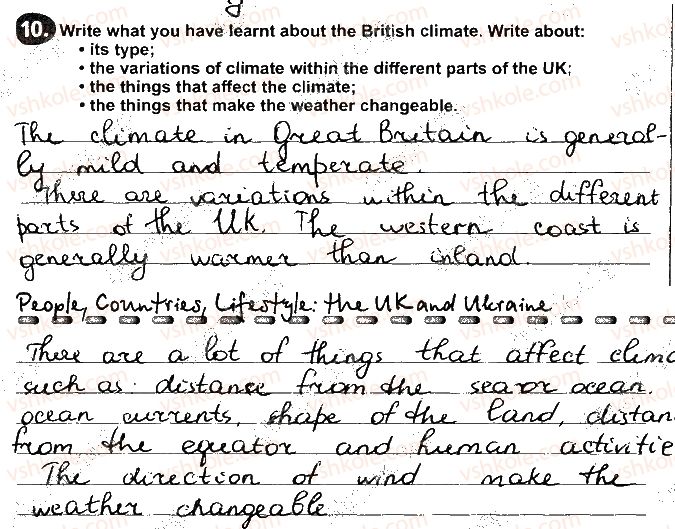 10. Write what you have learnt about the British climate. Write about:
• its type;
• the variations of climate within the different parts of the UK;
• the things that affect the climate;
• the things that make the weather changeable.
The climate in Great Britain is general-
ly mild and temperate.
There are variations within the different
parts of the UK. The western coast is
generally warmer than inland.
People, Countries, Lifestyle: the UK and Ukraine
There are a lot of things that affect clima
such as distance from the sea or ocean,
ocean currents, shape of the land, distan
from the equator and human activitie
The direction of wind make the
weather changeable
vshkole.com